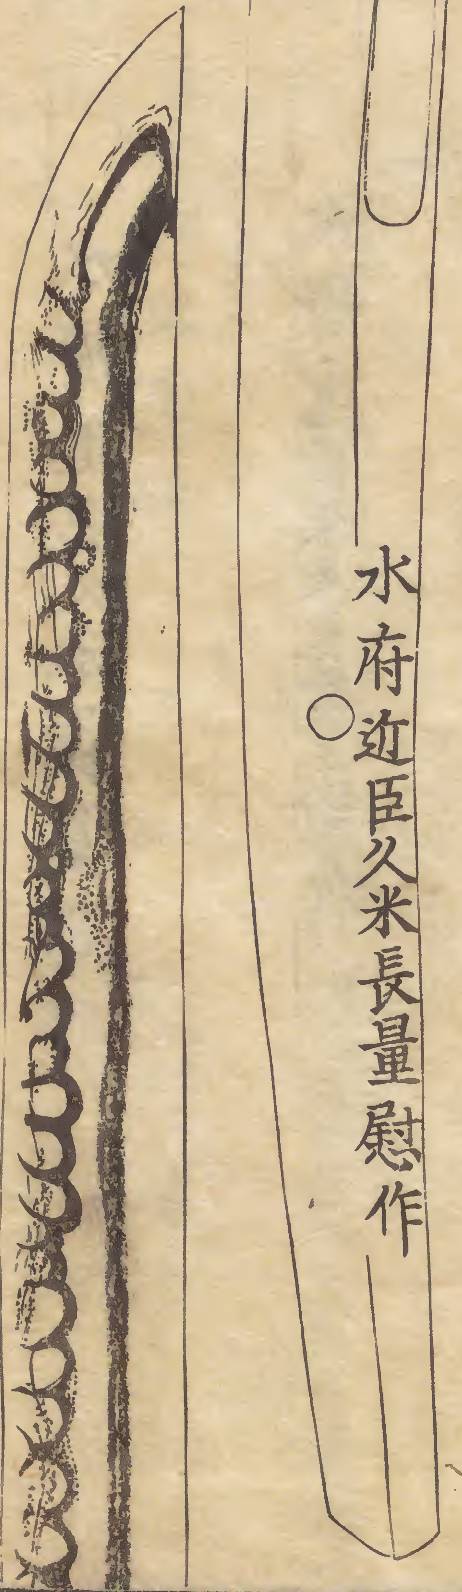 水府近臣久米長量慰作